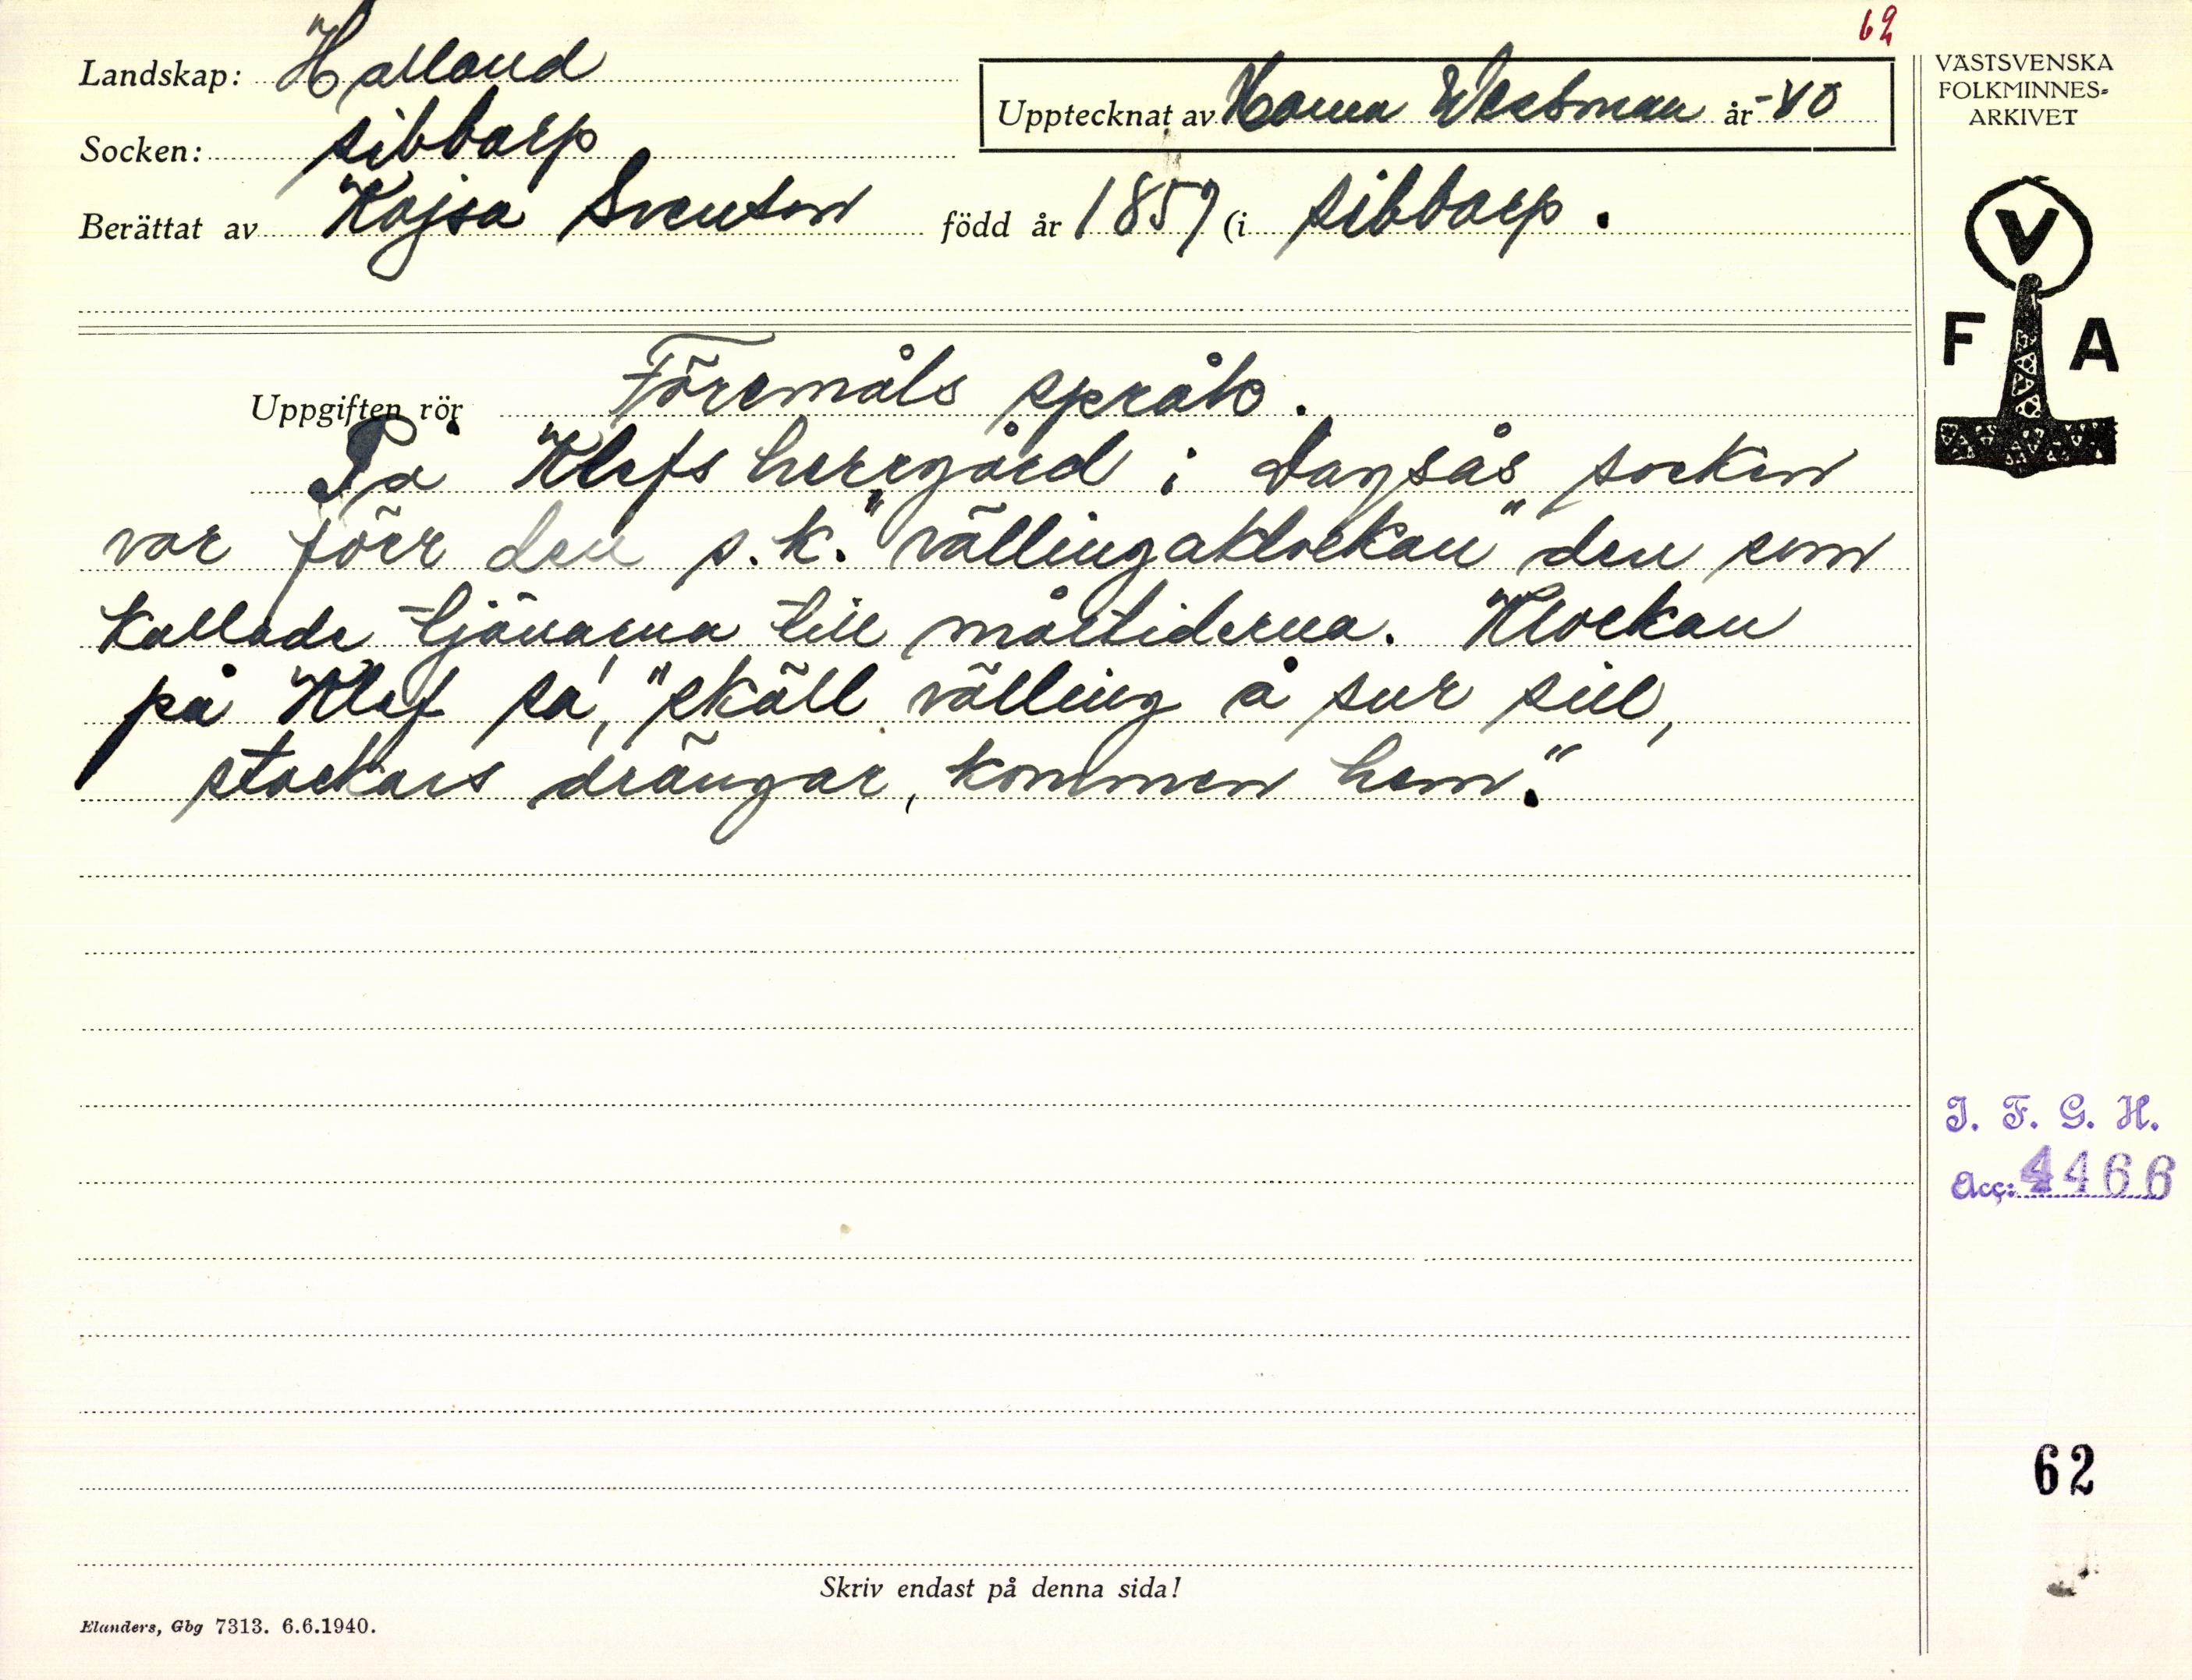 62
Landskap: Halland
Upptecknat av Hanna Wessman år -40
VÄSTSVENSKA
FOLKMINNES-
ARKIVET
Socken: Sibbarp
Berättat av Kajsa Svenson född år 1857 (i Sibbarp.
V
F A
Uppgiften rör Föremåls språk.
På Klefs herrgård i Dagsås socken
var förr den s.k. "vällingaklockan" den som
kallade tjänarna till måltiderna. Klockan
på Klef sa', "skäll välling å sur sill,
stackars drängar, kommen hem."
I. F. G. H.
Acc: 4466
62
Skriv endast på denna sida!
Elanders, Gbg 7313. 6.6.1940.